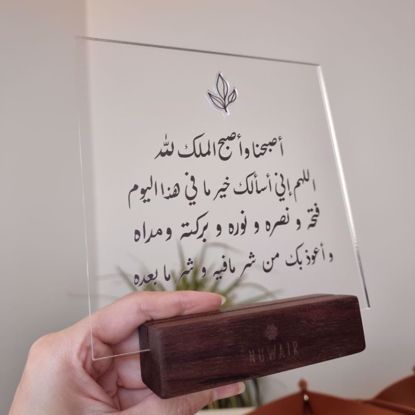 أصبحنا وأصبح الملك لله
اللهم إني أسألك خير ما في هذا اليوم
فتحه و نصره و نوره و بركته و مداه
و أعوذ بك من شر مافيه و شر ما بعده
NUWAIR